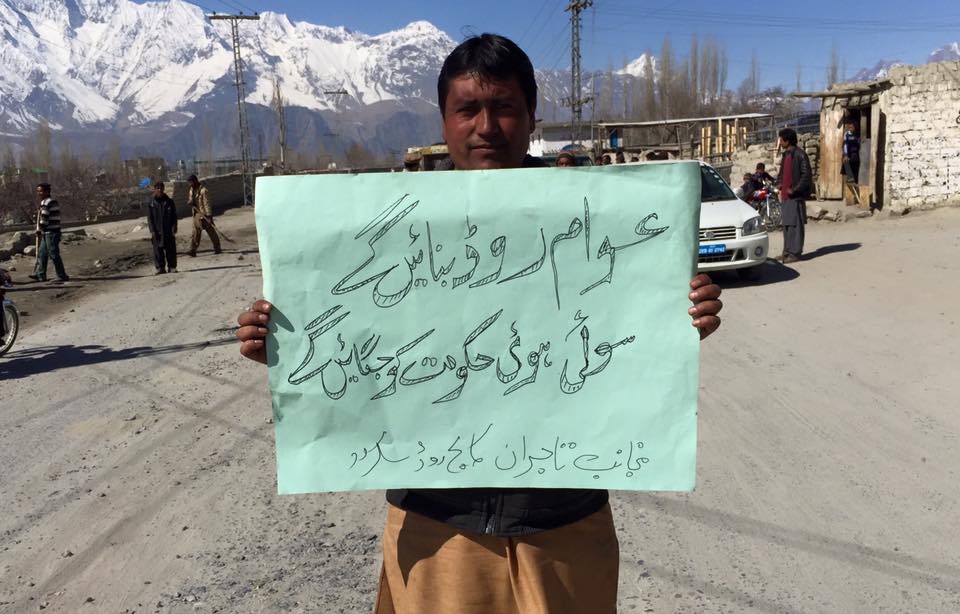 عوام روڈ بنائیں گے
سوئی ہوئی حکومت کو جگائیں گے
منجانب تاجران کالج روڈ سکردو